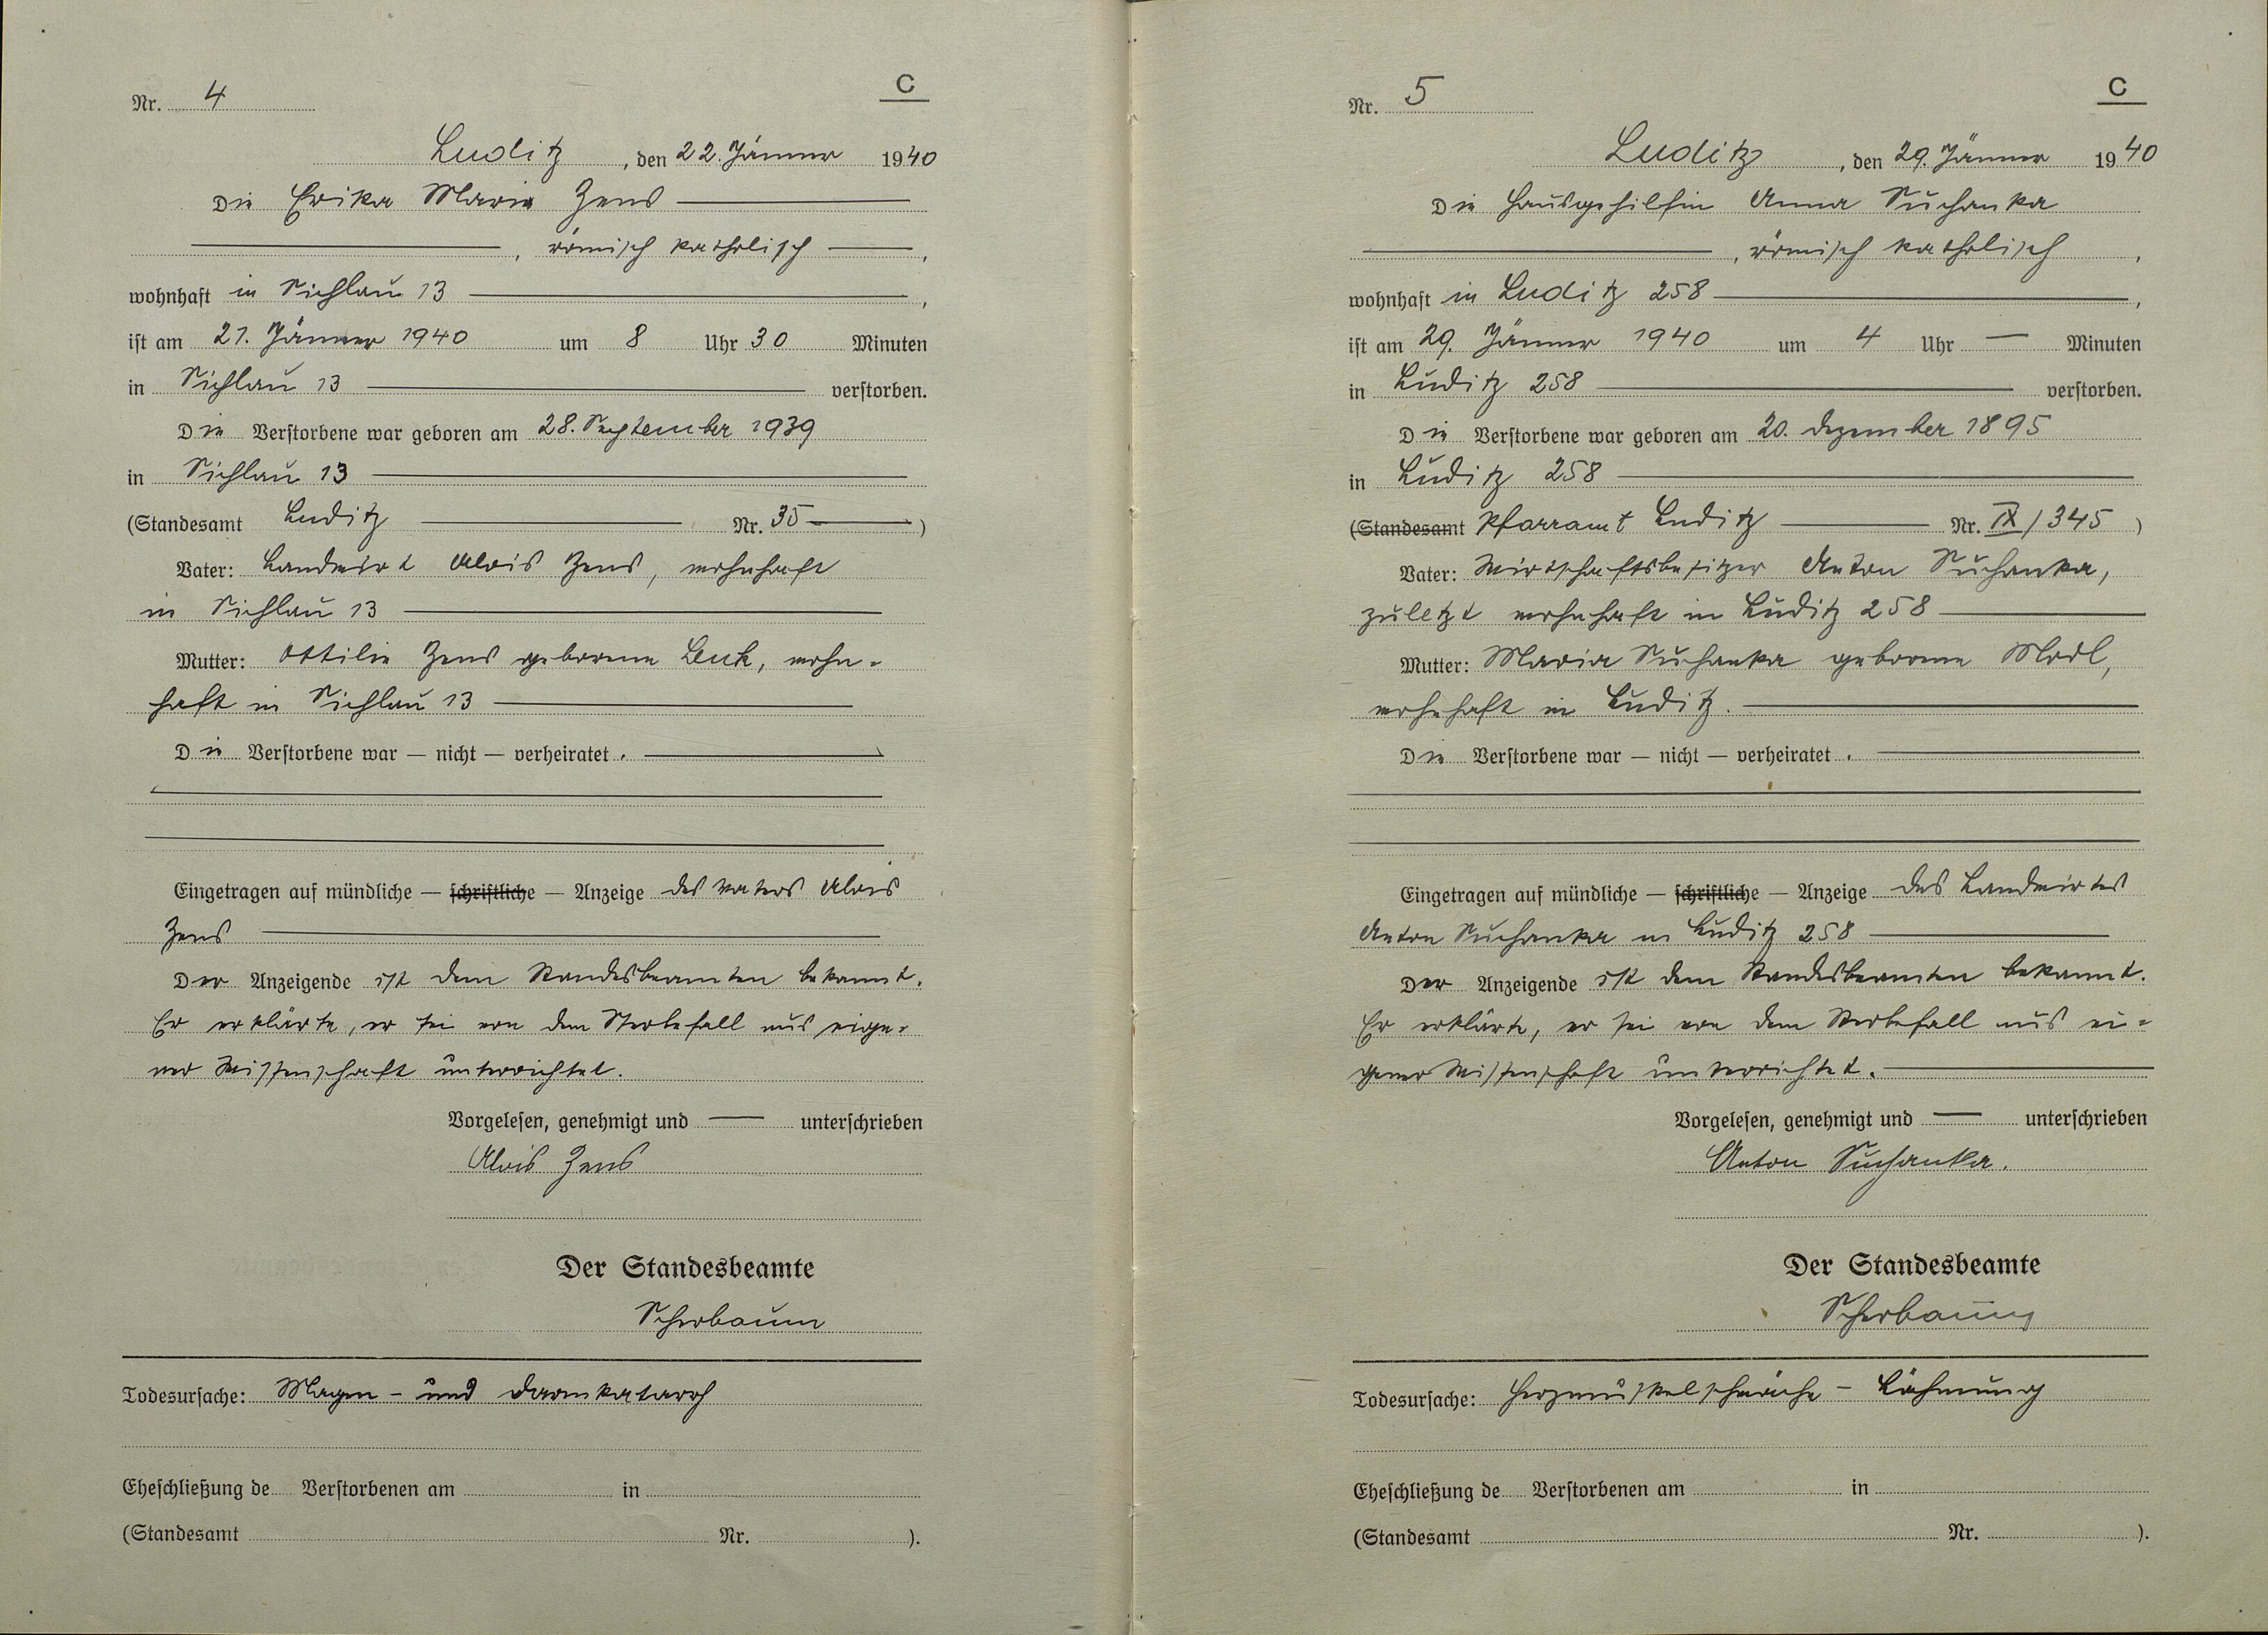 C
Nr. 4
Luditz, den 22. Jänner 1940
Die Erika Maria Zens
, römisch katholisch,
wohnhaft in Sichlau 13,
ist am 21. Jänner 1940 um 8 Uhr 30 Minuten
in Sichlau 13 verstorben.
Die Verstorbene war geboren am 28. September 1939
in Sichlau 13
(Standesamt Luditz Nr. 35)
Vater: Landwirt Alois Zens, wohnhaft
in Sichlau 13
Mutter: Ottilie Zens geborene, wohn=
haft in Sichlau 13
Die Verstorbene war — nicht — verheiratet.
Eingetragen auf mündliche — schriftliche — Anzeige des Vaters Alois
Zens
Der Anzeigende ist dem Standesbeamten bekannt.
Er erklärte, er sei von dem Sterbefall aus eige=
ner Wissenschaft unterrichtet.
Vorgelesen, genehmigt und — unterschrieben
Alois Zens
Der Standesbeamte
Scherbaum
Todesursache: Magen- und Darmkatarrh
Eheschließung de Verstorbenen am in
(Standesamt Nr. ).
C
Nr. 5
Luditz, den 29. Jänner 1940
Die Hausgehilfin Anna Suchanka
, römisch katholisch,
wohnhaft in Luditz 258,
ist am 29. Jänner 1940 um 4 Uhr — Minuten
in Luditz 258 verstorben.
Die Verstorbene war geboren am 20. Dezember 1895
in Luditz 258
(Standesamt Pfarramt Luditz Nr. IX/345)
Vater: Wirtschaftsbesitzer Anton Suchanka,
zuletzt wohnhaft in Luditz 258
Mutter: Maria Suchanka geborene Modl,
wohnhaft in Luditz.
Die Verstorbene war — nicht — verheiratet.
Eingetragen auf mündliche — schriftliche — Anzeige des Landwirtes
Anton Suchanka in Luditz 258
Der Anzeigende ist dem Standesbeamten bekannt.
Er erklärte, er sei von dem Sterbefall aus ei=
gener Wissenschaft unterrichtet.
Vorgelesen, genehmigt und — unterschrieben
Anton Suchanka.
Der Standesbeamte
Scherbaum
Todesursache: Herzmuskelschwäche - Lähmung
Eheschließung de Verstorbenen am in
(Standesamt Nr. ).